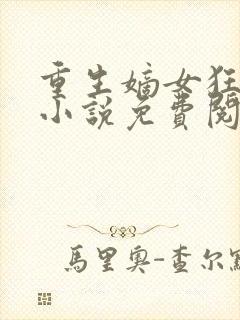 重生嫡女狂
小說免費閱
馬里奧-查尔